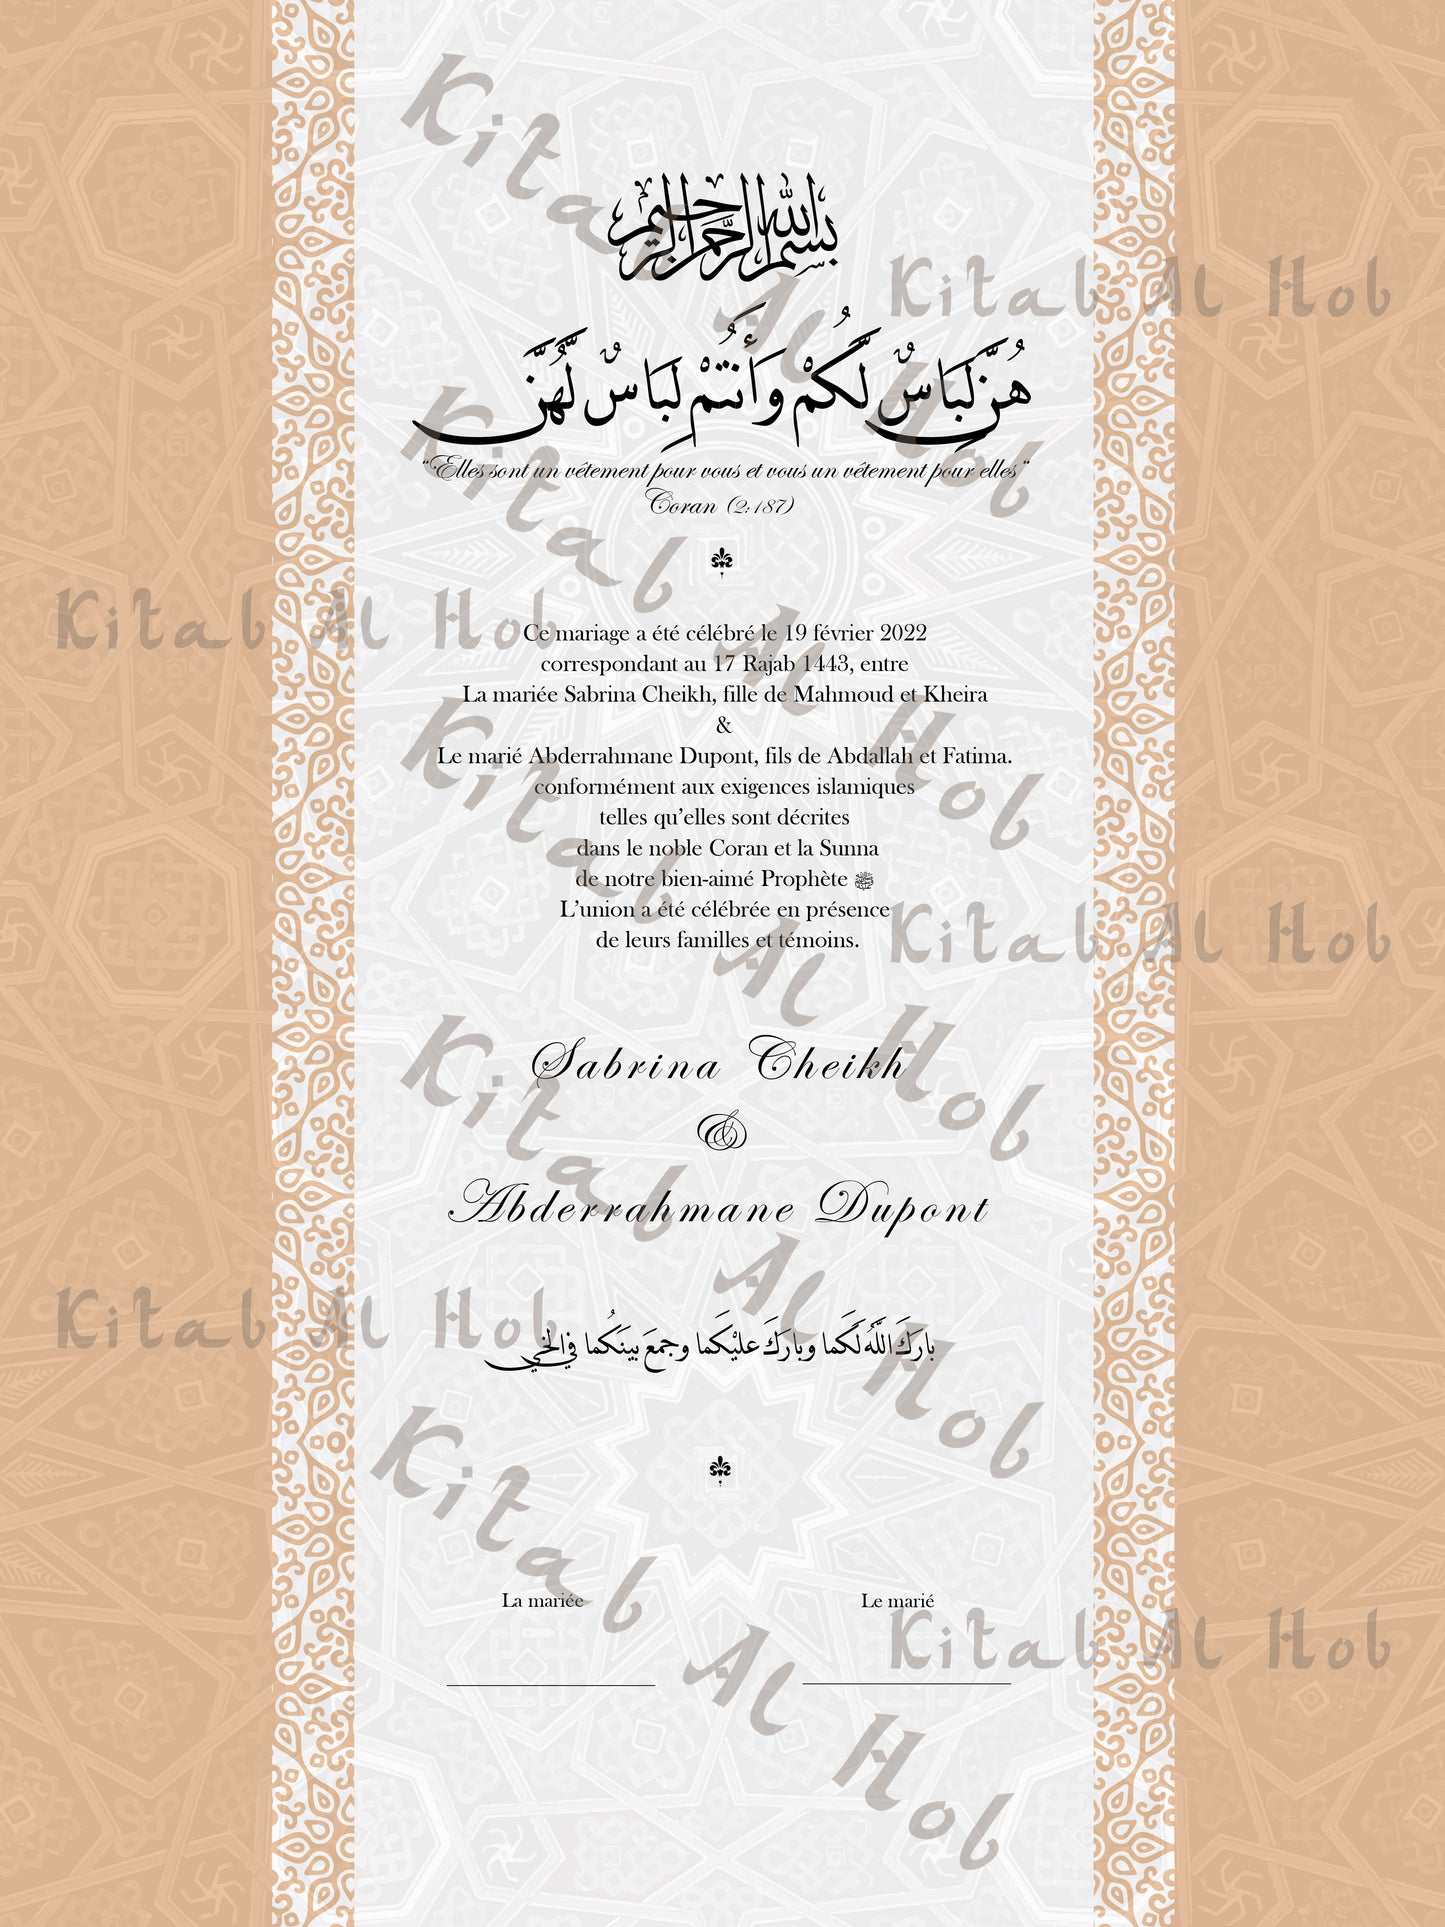 بسم الله الرحمن الرحيم
هُنَّ لِبَاسٌ لَّكُمْ وَأَنتُمْ لِبَاسٌ لَّهُنَّ
"Elles sont un vêtement pour vous et vous un vêtement pour elles"
Coran (2:187)
Ce mariage a été célébré le 19 février 2022
correspondant au 17 Rajab 1443, entre
La mariée Sabrina Cheikh, fille de Mahmoud et Kheira
&
Le marié Abderrahmane Dupont, fils de Abdallah et Fatima.
conformément aux exigences islamiques
telles qu’elles sont décrites
dans le noble Coran et la Sunna
de notre bien-aimé Prophète ﷺ
L’union a été célébrée en présence
de leurs familles et témoins.
Sabrina Cheikh
&
Abderrahmane Dupont
بارَكَ اللَّهُ لَكَما وبارَكَ عليْكَما وجمعَ بينَكُما في
La mariée
Le marié
Kitab Al Hob
Kitab Al Hob
Kitab Al Hob
Kitab Al Hob
Kitab Al Hob
Kitab Al Hob
Kitab Al Hob
Kitab Al Hob
Kitab Al Hob
Kitab Al Hob